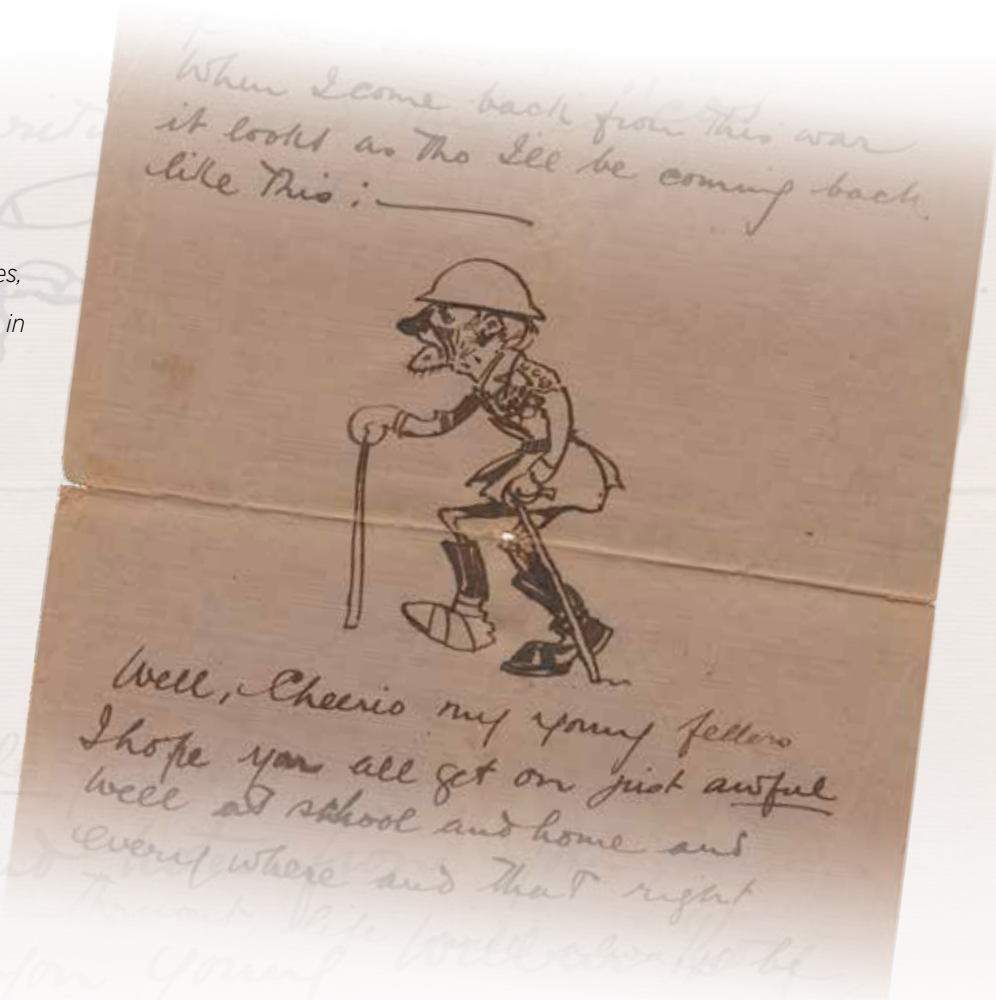 When I come back from this war
it looks as tho Ill be coming back
like this:
es,
in
Well, Cheerio my young fellers
I hope you all get on just awful
well at school and home and
everywhere and that right